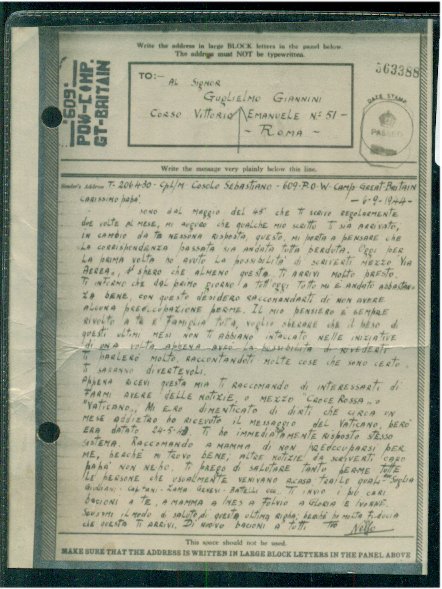 Write the address in large BLOCK letters in the panel below.
The address must NOT be typewritten.
609
POW-COMP.
GT-BRITAIN
TO:—
AL SIGNOR
GUGLIELMO GIANNINI
CORSO VITTORIO EMANUELE N° 51 -
- ROMA -
563388
DATE STAMP
PASSED
Write the message very plainly below this line.
Sender's Address T-206430 - CPL/M COSOLO SEBASTIANO - 609-P.O.W. CAMP GREAT BRITAIN
- 6-9-1944 -
CARISSIMO PAPÀ
SONO DAL MAGGIO DEL 43° CHE TI SCRIVO REGOLARMENTE
DUE VOLTE AL MESE, MI AUGURO CHE QUALCHE MIO SCRITTO TI SIA ARRIVATO,
IN CAMBIO DA TE NESSUNA RISPOSTA, QUESTO MI PORTA A PENSARE CHE
LA CORRISPONDENZA PASSATA SIA ANDATA TUTTA PERDUTA. OGGI PER
LA PRIMA VOLTA HO AVUTO LA POSSIBILITÀ DI SCRIVERTI MEZZO "VIA
AEREA", E SPERO CHE ALMENO QUESTA TI ARRIVI MOLTO PRESTO.
TI INFORMO CHE DAL PRIMO GIORNO A TUTT'OGGI TUTTO MI È ANDATO ABBASTAN
ZA BENE, CON QUESTO DESIDERO RACCOMANDARTI DI NON AVERE
ALCUNA PREOCCUPAZIONE PERME. IL MIO PENSIERO È SEMPRE
RIVOLTO A TE E FAMIGLIA TUTTA, VOGLIO SPERARE CHE IL PESO DI
QUESTI ULTIMI MESI NON TI ABBIANO INTACCATO NELLE INIZIATIVE
DI UNA VOLTA. APPENA AVRÒ LA POSSIBILITÀ DI RIVEDERTI
TI PARLERÒ MOLTO, RACCONTANDOTI MOLTE COSE CHE SONO CERTO
TI SARANNO DIVERTEVOLI.
APPENA RICEVI QUESTA MIA TI RACCOMANDO DI INTERESSARTI DI
FARMI AVERE DELLE NOTIZIE, O MEZZO "CROCE ROSSA" O
"VATICANO". MI ERO DIMENTICATO DI DIRTI CHE CIRCA UN
MESE ADDIETRO HO RICEVUTO IL MESSAGGIO DEL VATICANO, PERÒ
ERA DATATO 24-5-43, TI HO IMMEDIATAMENTE RISPOSTO STESSO
SISTEMA. RACCOMANDO A MAMMA DI NON PREOCCUPARSI PER
ME, PERCHÈ MI TROVO BENE, ALTRE NOTIZIE DA SCRIVERTI CARO
PAPÀ NON NE HO. TI PREGO DI SALUTARE TANTO PERME TUTTE
LE PERSONE CHE USUALMENTE VENIVANO A CASA TRA LE QUALI
TI INVIO I PIÙ CARI
BACIONI A TE, A MAMMA A INES A FULVIO A GLORIA E IVONNE.
SCUSAMI IL MODO DI SALUTO DI QUESTA ULTIMA RIGHA; PERCHÈ HO MOLTA FIDUCIA
CHE QUESTA TI ARRIVI. DI NUOVO BACIONI A TUTTI TUO
This space should not be used.
MAKE SURE THAT THE ADDRESS IS WRITTEN IN LARGE BLOCK LETTERS IN THE PANEL ABOVE